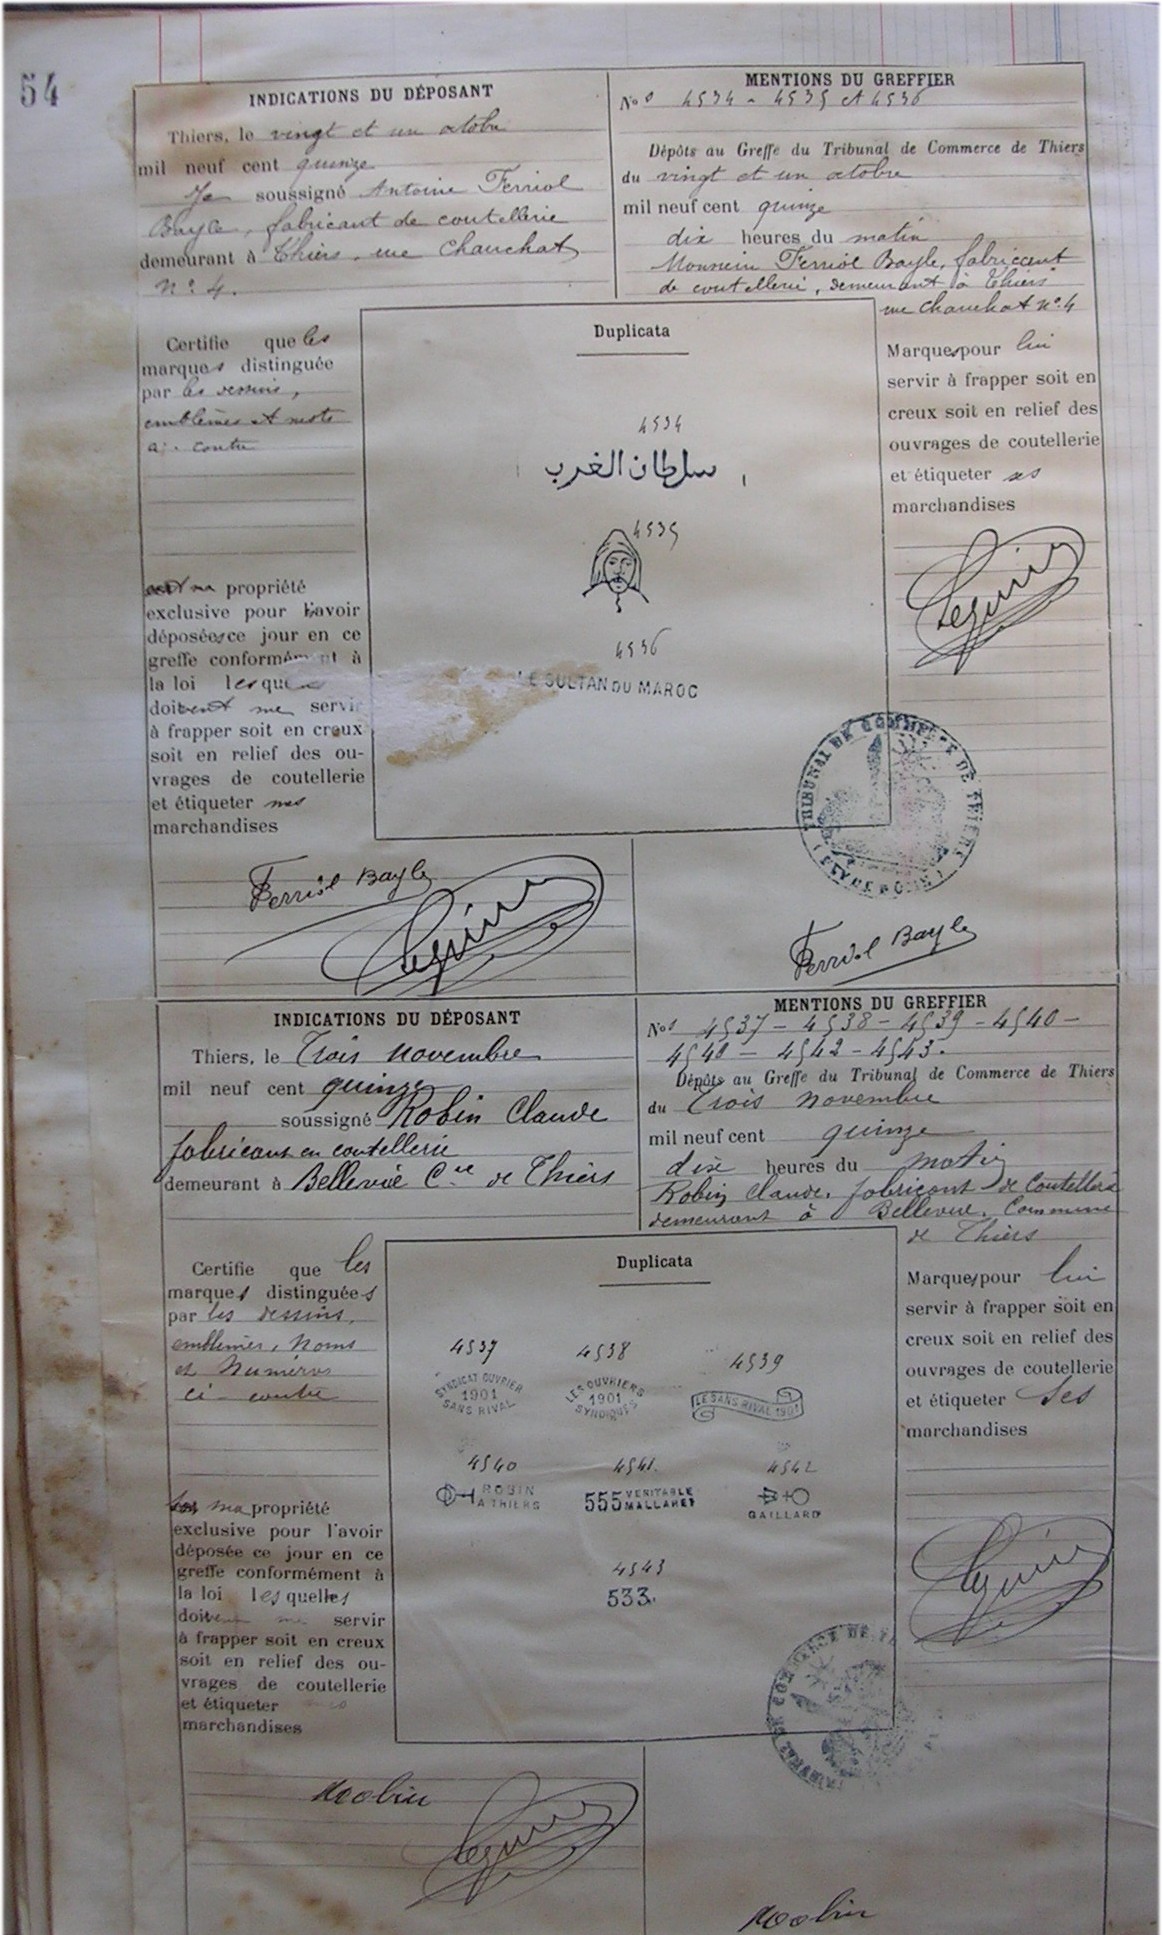 54
INDICATIONS DU DÉPOSANT
Thiers, le vingt et un octobre
mil neuf cent quinze
Je soussigné Antoine Ferriol
Bayle, fabricant de coutellerie
demeurant à Thiers, rue Chauchat
N° 4.
MENTIONS DU GREFFIER
Nos 4534 - 4535 et 4536
Dépôts au Greffe du Tribunal de Commerce de Thiers
du vingt et un octobre
mil neuf cent quinze
dix heures du matin
Monsieur Ferriol Bayle, fabricant
de coutellerie, demeurant à Thiers
rue Chauchat N° 4
Certifie que les
marques distinguée
par les dessins,
emblèmes et mots
ci-contre
ma propriété
exclusive pour l'avoir
déposées ce jour en ce
greffe conformément à
la loi lesque
doivent me servir
à frapper soit en creux
soit en relief des ou-
vrages de coutellerie
et étiqueter mes
marchandises
Duplicata
4534
سلطان الغرب
4535
4536
LE SULTAN DU MAROC
Marques pour lui
servir à frapper soit en
creux soit en relief des
ouvrages de coutellerie
et étiqueter ses
marchandises
TRIBUNAL DE COMMERCE DE THIERS
Ferriol Bayle
Ferriol Bayle
INDICATIONS DU DÉPOSANT
Thiers, le Trois Novembre
mil neuf cent quinze
soussigné Robin Claude
fabricant en coutellerie
demeurant à Bellevue Cne de Thiers
MENTIONS DU GREFFIER
Nos 4537 - 4538 - 4539 - 4540 -
4542 - 4543.
Dépôts au Greffe du Tribunal de Commerce de Thiers
du Trois Novembre
mil neuf cent quinze
dix heures du matin
Robin Claude, fabricant de Coutellerie
demeurant à Bellevue, Commune
de Thiers
Certifie que les
marques distinguées
par les dessins,
emblèmes, Noms
et Numéros
ci-contre
ma propriété
exclusive pour l'avoir
déposée ce jour en ce
greffe conformément à
la loi lesquelles
doivent me servir
à frapper soit en creux
soit en relief des ou-
vrages de coutellerie
et étiqueter mes
marchandises
Duplicata
4537 4538 4539
SYNDICAT OUVRIER
1901
SANS RIVAL
LES OUVRIERS
1901
SYNDIQUÉS
LE SANS RIVAL 1901
4540 4541 4542
ROBIN
A THIERS
555 VERITABLE
MALLARET
GAILLARD
4543
533.
Marques pour lui
servir à frapper soit en
creux soit en relief des
ouvrages de coutellerie
et étiqueter ses
marchandises
COMMERCE DE
Robin
Robin